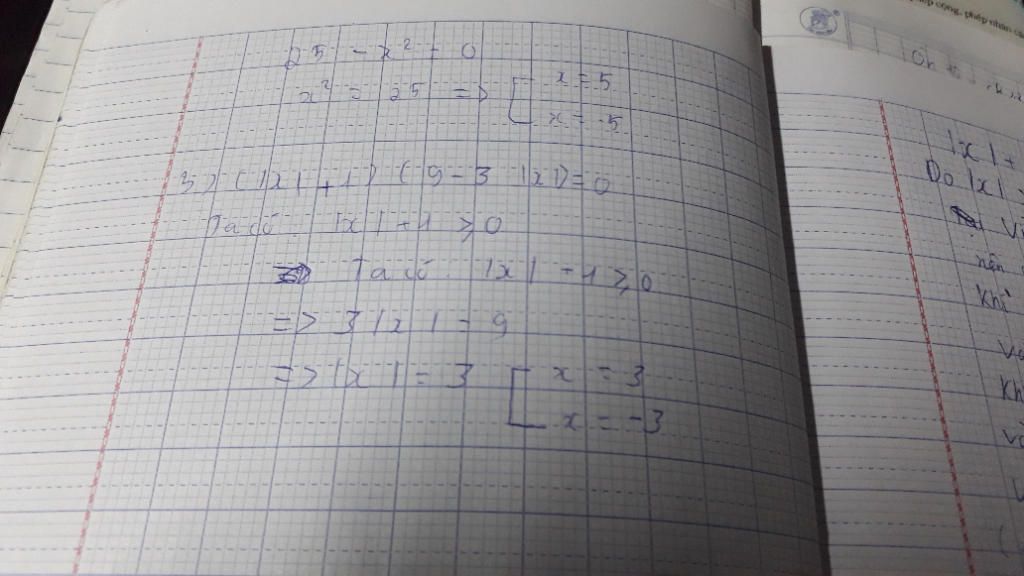 25 - x² = 0
x² = 25 => [ x = 5
x = -5
3) (|x| + 1) (9 - 3 |x|) = 0
Ta có: |x| + 1 ⩾ 0
Ta có |x| - 1 ⩾ 0
=> 3 |x| = 9
=> |x| = 3 [ x = 3
x = -3
phép cộng, phép nhân
|x| +
Do |x|
Vì
nên
Khi
và
Kh
và
(